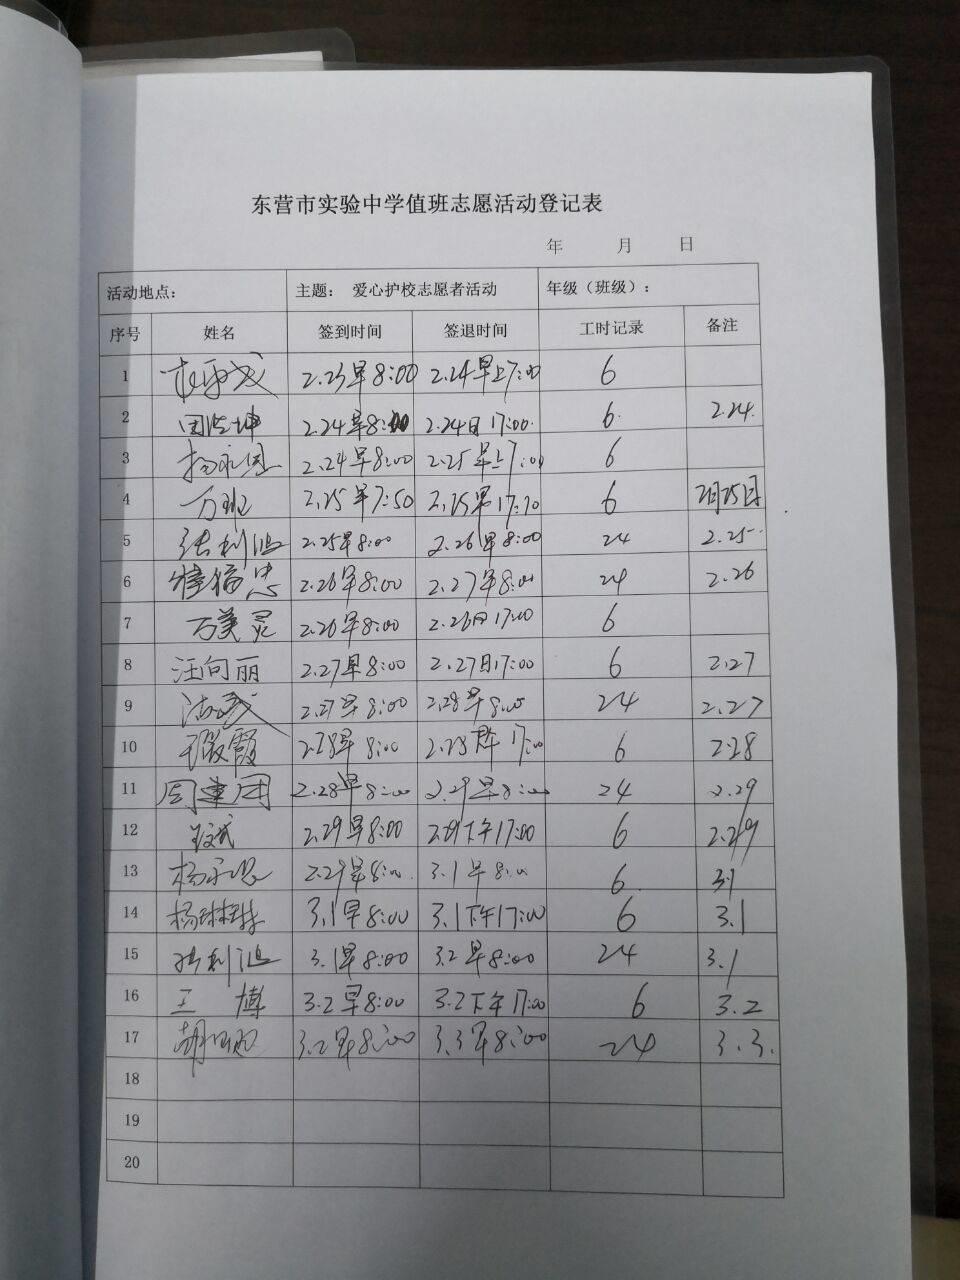 东营市实验中学值班志愿活动登记表
年 月 日
活动地点： 主题： 爱心护校志愿者活动 年级（班级）：
序号 姓名 签到时间 签退时间 工时记录 备注
1 2.23早8:00 2.24早上7:00 6
2 2.24早8:00 2.24日17:00 6 2.24
3 杨永恩 2.24早8:00 2.25早上7:00 6
4 万班 2.25早7:50 2.25 17:10 6 2月25日
5 张利鸿 2.25早8:00 2.26早8:00 24 2.25
6 福忠 2.26早8:00 2.27早8:00 24 2.26
7 万美灵 2.26早8:00 2.26日17:00 6
8 汪向丽 2.27早8:00 2.27日17:00 6 2.27
9 2.27早8:00 2.28早8:00 24 2.27
10 霞 2.28早8:00 2.28下午17:00 6 2.28
11 周建国 2.28早8:00 2.29早8:00 24 2.29
12 2.29早8:00 2.29下午17:00 6 2.29
13 杨永恩 2.29早8:00 3.1早8:00 6 3.1
14 杨 3.1早8:00 3.1下午17:00 6 3.1
15 张利鸿 3.1早8:00 3.2早8:00 24 3.1
16 王博 3.2早8:00 3.2下午17:00 6 3.2
17 胡 3.2早8:00 3.3早8:00 24 3.3.
18
19
20